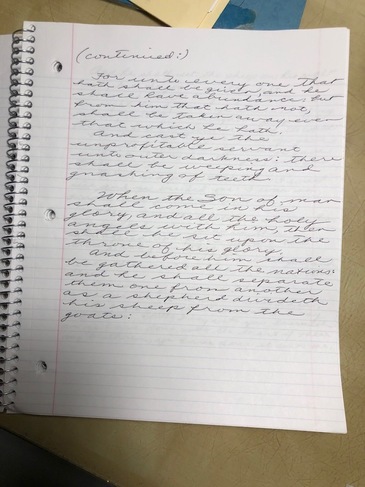 (continued:)
For unto every one that
hath shall be given, and he
shall have abundance: but
from him that hath not,
shall be taken away even
that which he hath.
And cast ye the
unprofitable servant
into outer darkness: there
shall be weeping and
gnashing of teeth.
When the Son of man
shall come in his
glory, and all the holy
angels with him, then
shall he sit upon the
throne of his glory.
And before him shall
be gathered all the nations:
and he shall separate
them one from another
as a shepherd divideth
his sheep from the
goats: